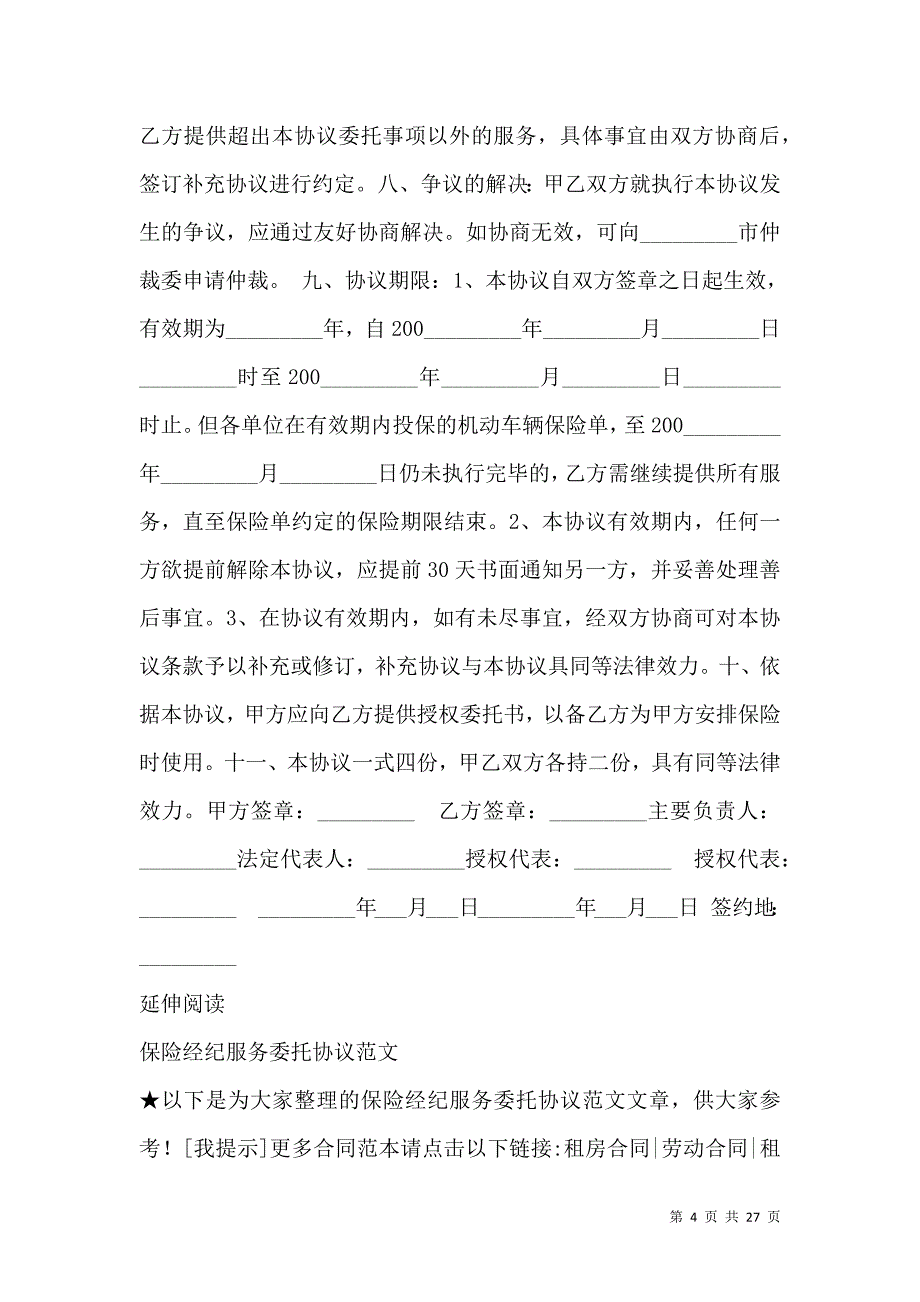 乙方提供超出本协议委托事项以外的服务，具体事宜由双方协商后，
签订补充协议进行约定。八、争议的解决：甲乙双方就执行本协议发
生的争议，应通过友好协商解决。如协商无效，可向_________市仲
裁委申请仲裁。 九、协议期限：1、本协议自双方签章之日起生效，
有效期为_________年，自200_________年_________月_________日
_________时至200_________年_________月_________日_________
时止。但各单位在有效期内投保的机动车辆保险单，至200_________
年_________月_________日仍未执行完毕的，乙方需继续提供所有服
务，直至保险单约定的保险期限结束。2、本协议有效期内，任何一
方欲提前解除本协议，应提前30天书面通知另一方，并妥善处理善
后事宜。3、在协议有效期内，如有未尽事宜，经双方协商可对本协
议条款予以补充或修订，补充协议与本协议具同等法律效力。十、依
据本协议，甲方应向乙方提供授权委托书，以备乙方为甲方安排保险
时使用。十一、本协议一式四份，甲乙双方各持二份，具有同等法律
效力。甲方签章：_________　乙方签章：_________主要负责人：
_________法定代表人：_________授权代表：_________　授权代表：
_________　_________年___月___日_________年___月___日 签约地：
_________
延伸阅读
保险经纪服务委托协议范文
★以下是为大家整理的保险经纪服务委托协议范文文章，供大家参
考！[我提示]更多合同范本请点击以下链接:租房合同|劳动合同|租
第 4 页 共 27 页